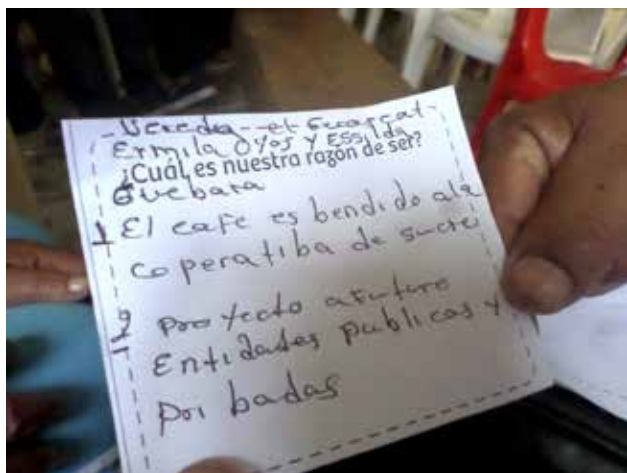 Vereda - el
Ermila Oyos y Essilda
¿Cuál es nuestra razón de ser?
Guebara
1 El cafe es bendido ala
coperatiba de sucre
2 proyecto afuturo
Entidades publicas y
pri badas